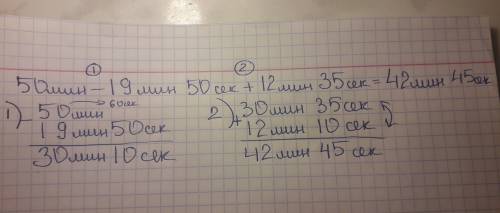 ① ②
50мин - 19мин 50сек + 12мин 35сек = 42мин 45сек
1) - 50мин 60сек 2) + 30мин 35сек
19мин 50сек 12мин 10сек
30мин 10сек 42мин 45сек